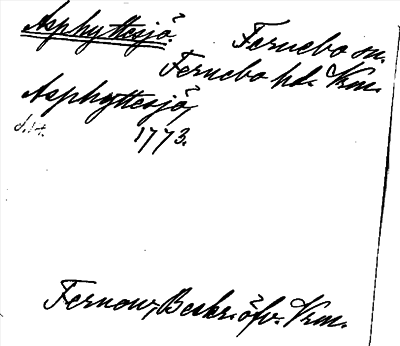 Asphyttesjö.
Fernebo sn.
Fernebo hd. Vrm.
Asphyttesjö,
1773.
Fernow, Beskr. öfv. Vrm.